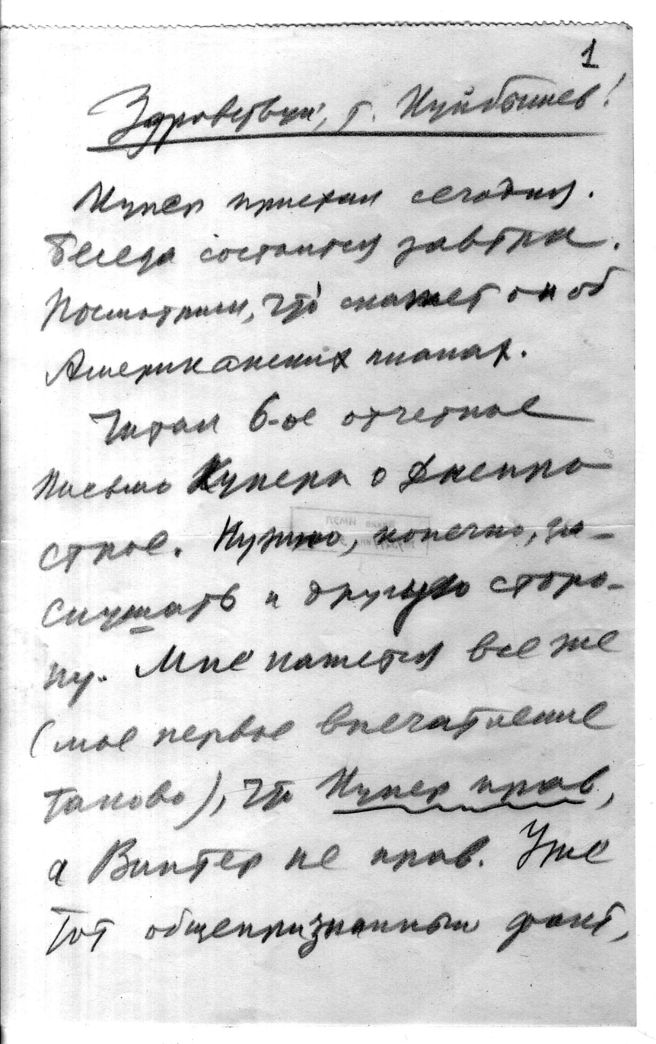 1
Здравствуй, т. Куйбышев!
Купер приехал сегодня.
Беседа состоится завтра.
Посмотрим, что скажет он об
Американских планах.
Читал 6-ое отчетное
письмо Купера о Днепро-
строе. Нужно, конечно, за-
слушать и другую сторо-
ну. Мне кажется все же
(мое первое впечатление
таково), что Купер прав,
а Винтер не прав. Уже
тот общепризнанный факт,